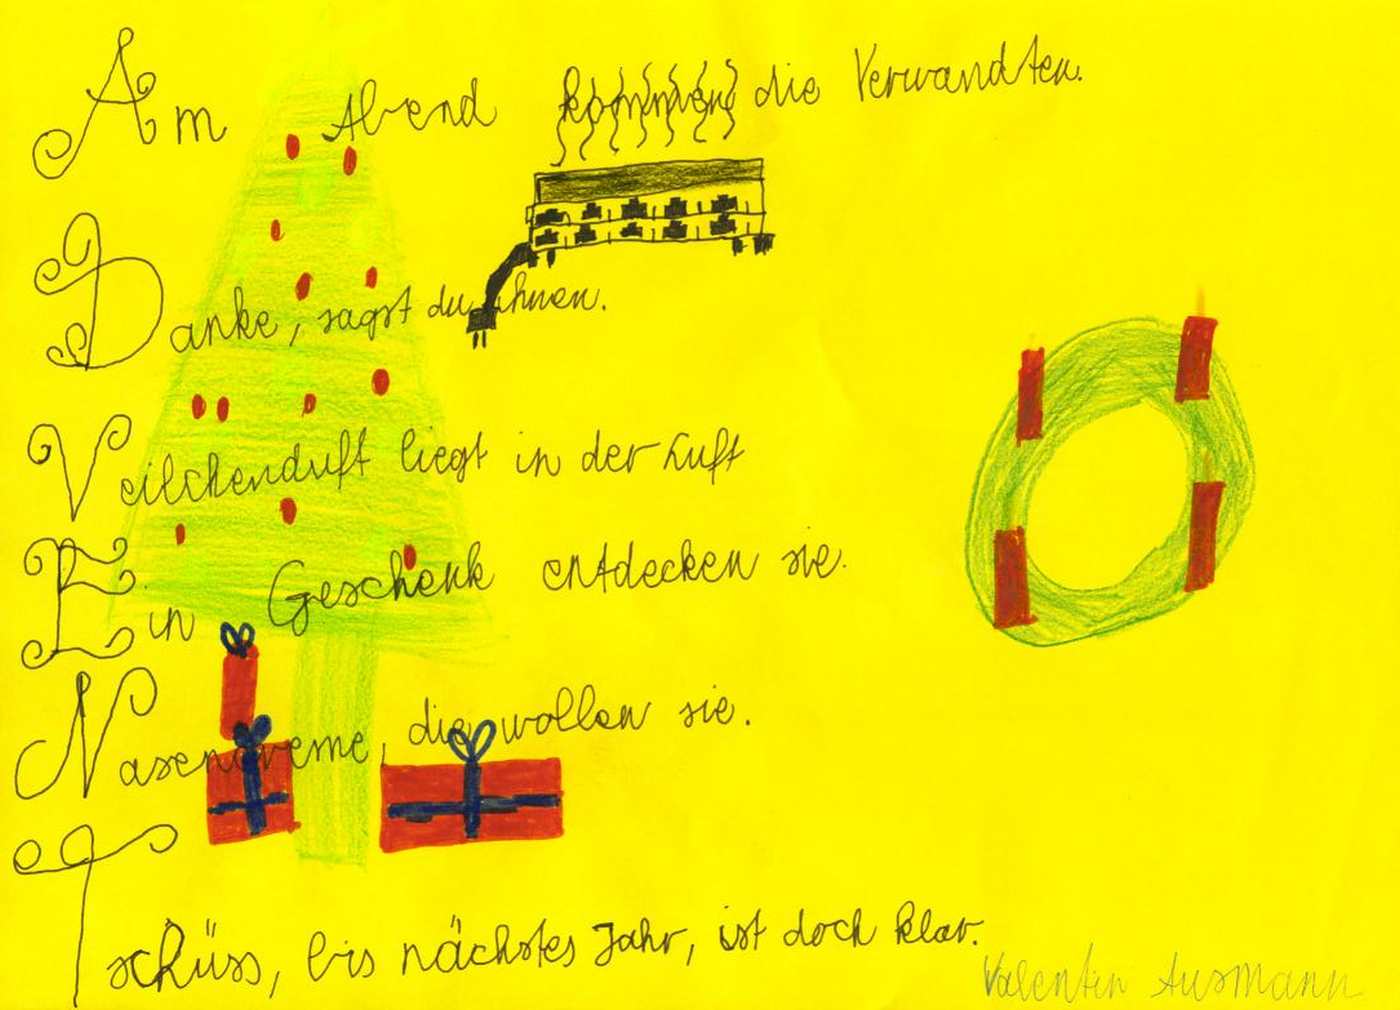 Am Abend kommen die Verwandten.
Danke, sagst du ihnen.
Veilchenduft liegt in der Luft
Ein Geschenk entdecken sie.
Nasencreme, die wollen sie.
Tschüss, bis nächstes Jahr, ist doch klar.
Valentin Ausmann